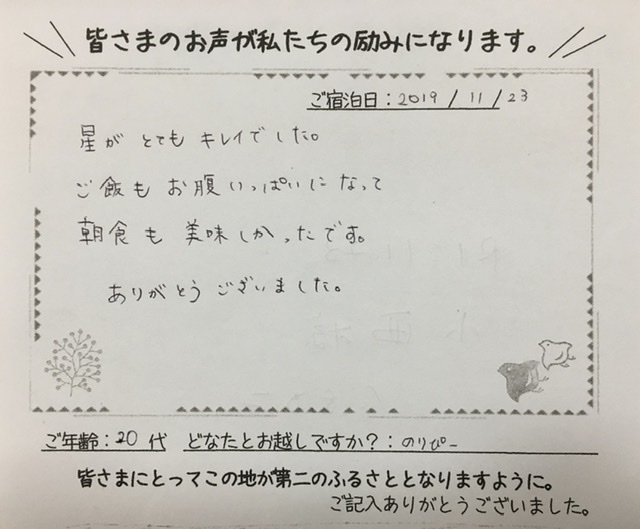 皆さまのお声が私たちの励みになります。
ご宿泊日：2019 / 11 / 23
星が とても キレイでした。
ご飯も お腹いっぱいになって
朝食も 美味しかったです。
ありがとうございました。
ご年齢：20 代 どなたとお越しですか？：のりぴー
皆さまにとってこの地が第二のふるさととなりますように。
ご記入ありがとうございました。